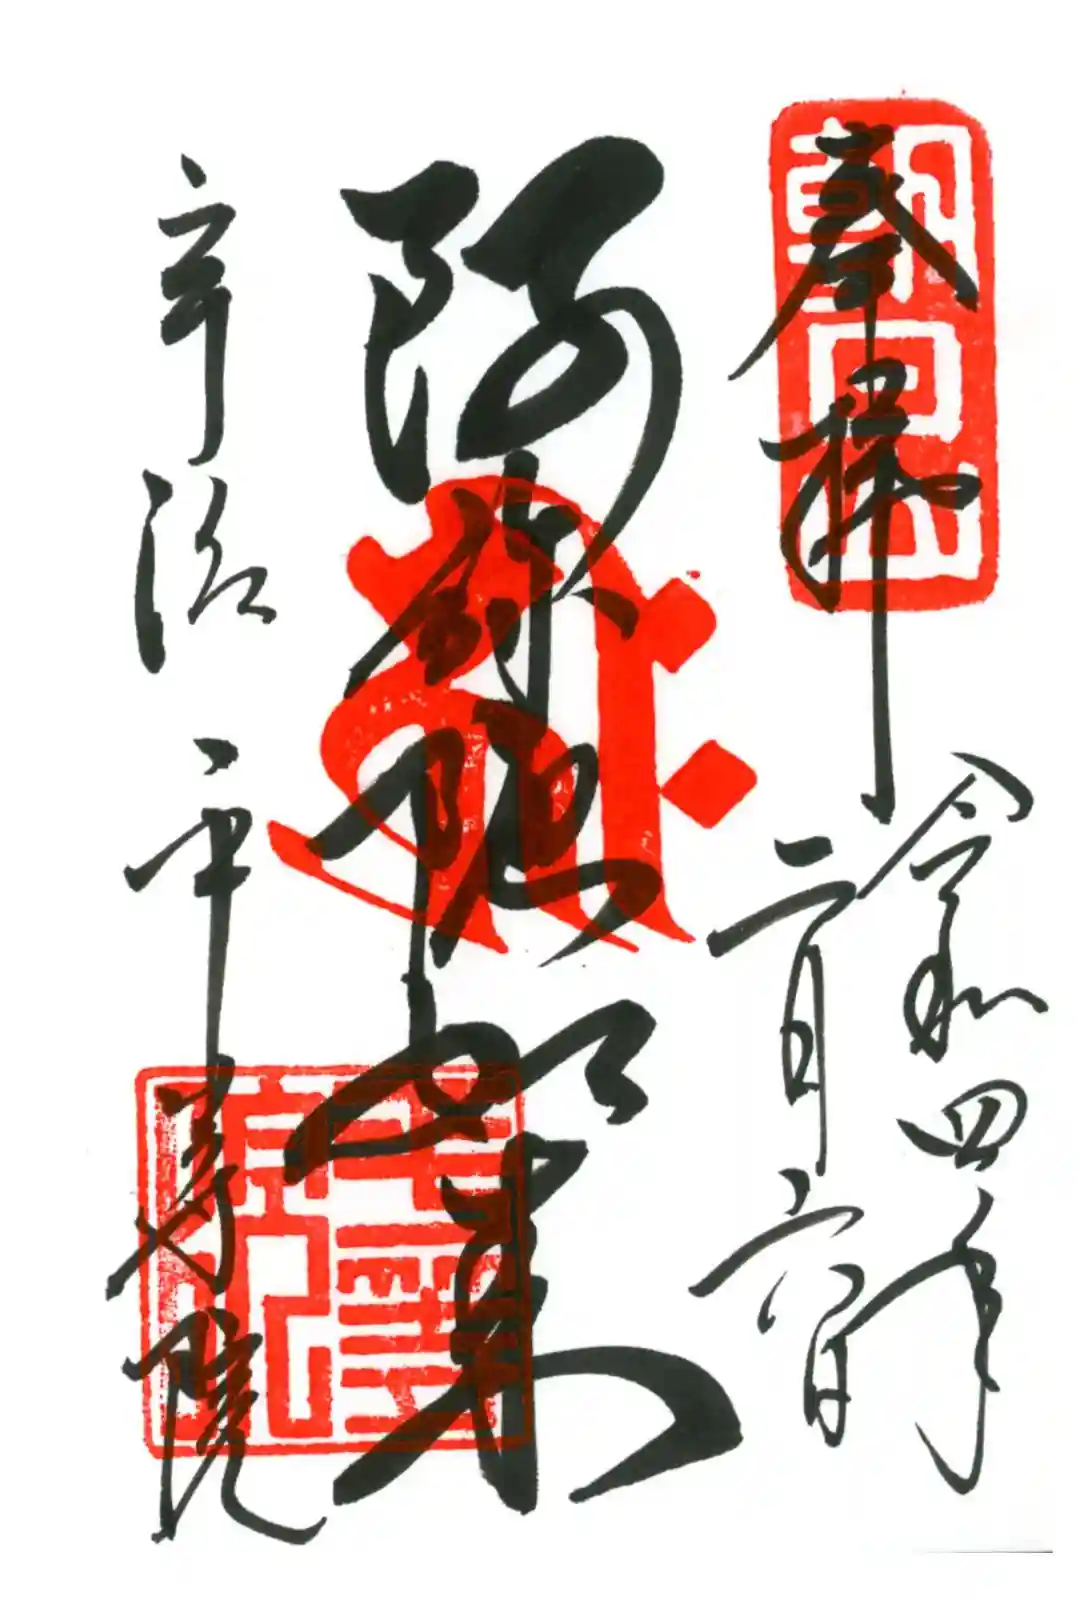 奉拝
朝日山
令和四年
二月六日
阿弥陀如来
宇治 平等院